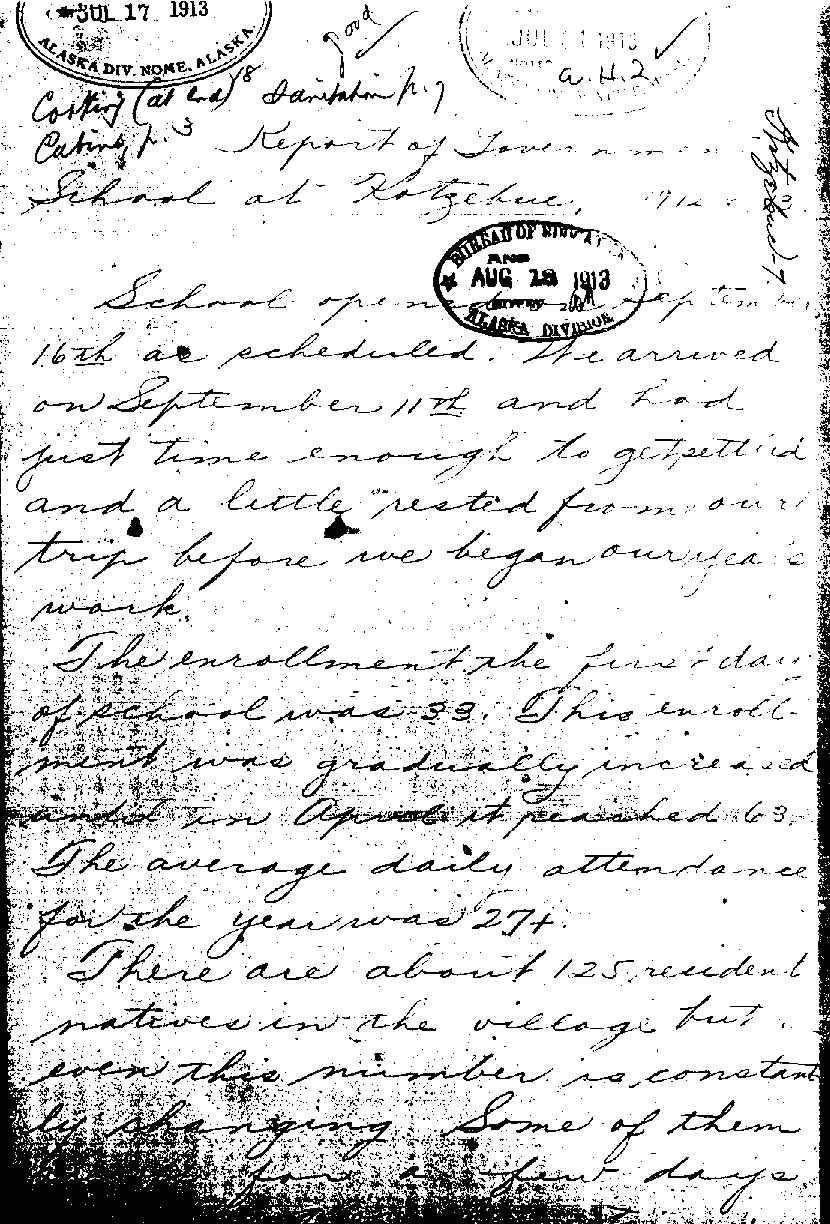 JUL 17 1913
ALASKA DIV. NOME, ALASKA.
good
JUL 1913
a.H.Z.
Cooking (at end) 18 Sanitation p. 7
Cabins, p. 3
Report of Governmen
School at Kotzebue, 191
BUREAU OF
AUG 28 1913
ALASKA DIVISION
School opened on Septem
16th as scheduled. We arrived
on September 11th and had
just time enough to get settled
and a little rested from our
trip before we began our year's
work.
The enrollment the first day
of school was 33. This enroll-
ment was gradually increased
until in April it reached 63.
The average daily attendance
for the year was 27+.
There are about 125 resident
natives in the village but
even this number is constant
ly changing Some of them
for a few days